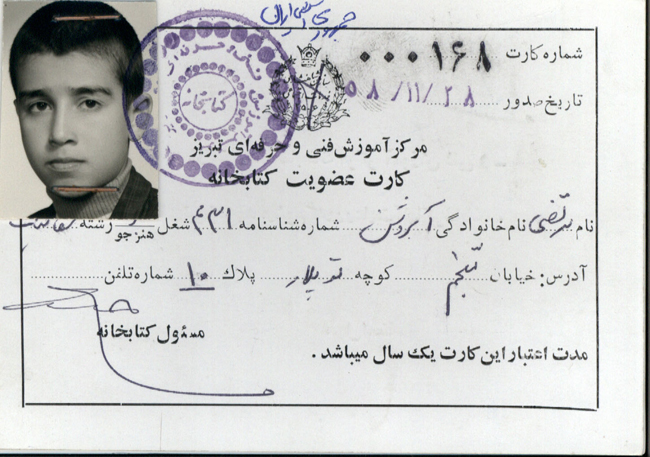 جمهوری اسلامی ایران
کتابخانه
شماره کارت ۰۰۰۱۶۸
تاریخ صدور ۵۸/۱۱/۲۸
مرکز آموزش فنی و حرفه‌ای تبریز
کارت عضویت کتابخانه
نام مرتضی نام خانوادگی آبروش شماره شناسنامه ۴۳۱ شغل هنرجو رشته
آدرس: خیابان کوچه پلاک ۱۰ شماره تلفن
مسئول کتابخانه
مدت اعتبار این کارت یک سال میباشد.